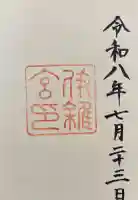 令和八年七月二十三日
伊雑宮印